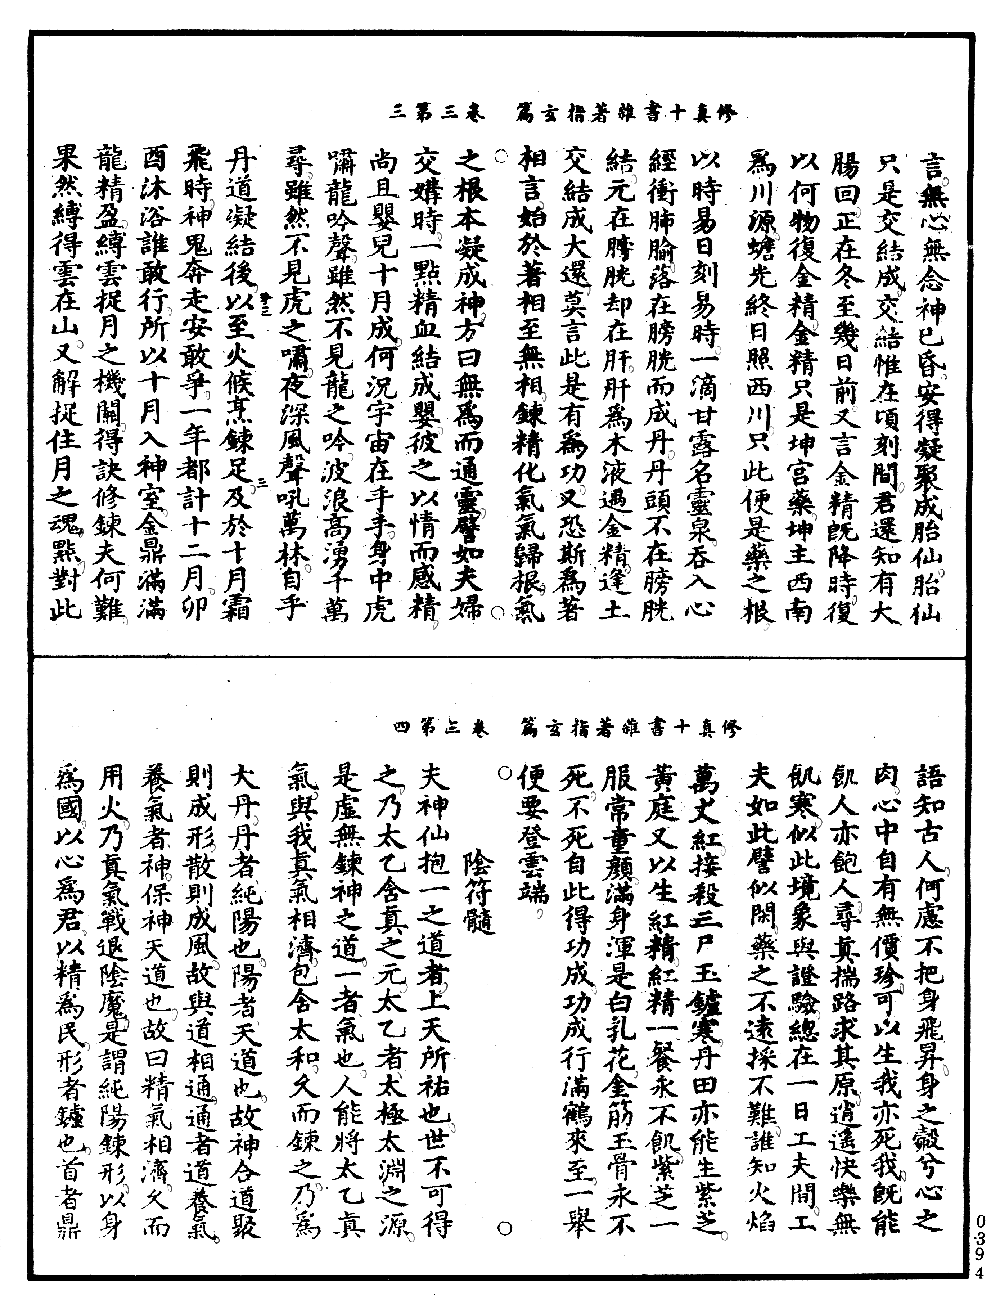 修真十書雜著指玄篇　卷三第三
言無心無念神已昏安得凝聚成胎仙胎仙
只是交結成交結惟在頃刻間君還知有大
腸回正在冬至幾日前又言金精既降時復
以何物復金精金精只是坤宮藥坤主西南
爲川源蟾光終日照西川只此便是藥之根
以時易日刻易時一滴甘露名靈泉吞入心
經衝肺腧落在膀胱而成丹丹頭不在膀胱
結元在膀胱却在肝肝爲木液遇金精逢土
交結成大還莫言此是有爲功又恐斯爲著
相言始於著相至無相鍊精化氣氣歸根氣
之根本凝成神方曰無爲而通靈譬如夫婦
交媾時一點精血結成嬰彼之以情而感精
尚且嬰兒十月成何況宇宙在手手身中虎
嘯龍吟聲雖然不見龍之吟波浪高湧千萬
尋雖然不見虎之嘯夜深風聲吼萬林自乎
丹道凝結後以至火候烹鍊足及於十月霜
飛時神鬼奔走安敢爭一年都計十二月卯
酉沐浴誰敢行所以十月入神室金鼎滿滿
龍精盈縛雲捉月之機關得訣修鍊夫何難
果然縛得雲在山又解捉住月之魂點對此
修真十書雜著指玄篇　卷三第四
語知古人何慮不把身飛昇身之殼兮心之
肉心中自有無價珍可以生我亦死我既能
飢人亦飽人尋真揣路求其原逍遙快樂無
飢寒似此境象與證驗總在一日工夫間工
夫如此譬似閑藥之不遠採不難誰知火焰
萬丈紅接殺三尸玉鑪寒丹田亦能生紫芝
黃庭又以生紅精紅精一餐永不飢紫芝一
服常童顏滿身渾是白乳花金筋玉骨永不
死不死自此得功成功成行滿鶴來至一舉
便要登雲端
陰符髓
夫神仙抱一之道者上天所祐也世不可得
之乃太乙含真之元太乙者太極太淵之源
是虛無鍊神之道一者氣也人能將太乙真
氣與我真氣相濟包含太和久而鍊之乃爲
大丹丹者純陽也陽者天道也故神合道聚
則成形散則成風故與道相通通者道養氣
養氣者神保神天道也故曰精氣相濟久而
用火乃真氣戰退陰魔是謂純陽鍊形以身
爲國以心爲君以精爲民形者鑪也首者鼎
0394